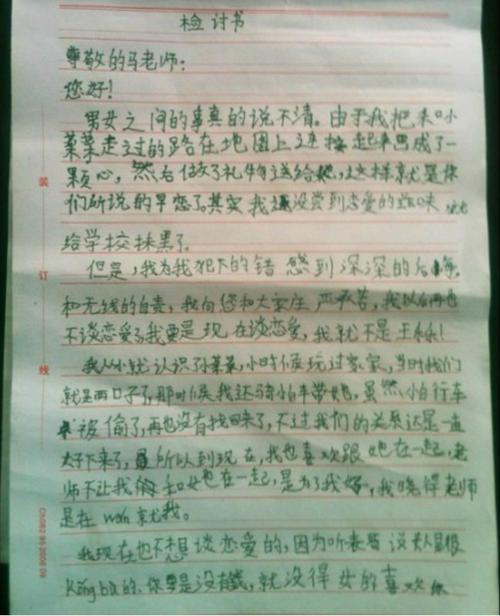 检讨书
尊敬的马老师：
您好！
男女之间的事真的说不清。由于我把和小
菜菜走过的路在地图上连接起来画成了一
颗心，然后做了礼物送给她，这样就是你
们所说的早恋了。其实我还没尝到恋爱的滋味，就
给学校抹黑了。
但是，我为我犯下的错感到深深的后悔，
和无线的自责，我向您和大家庄严承若，我以后再也
不谈恋爱了，我要是现在谈恋爱，我就不是王
我从小就认识孙菜菜，小时候玩过家家，当时我们
就是两口子了，那时候我还骑小自车带她，虽然小自行车
被偷了，再也没有找回来了，不过我们的关系还是一直
好下来了，所以到现在，我也喜欢跟她在一起，老
师不让我和她在一起，是为了我好，我晓得老师
是在wan就我。
我现在也不想谈恋爱的，因为听表哥说大人是很
kǒng bù的，你要是没有钱，就没得女的喜欢你
装
订
线